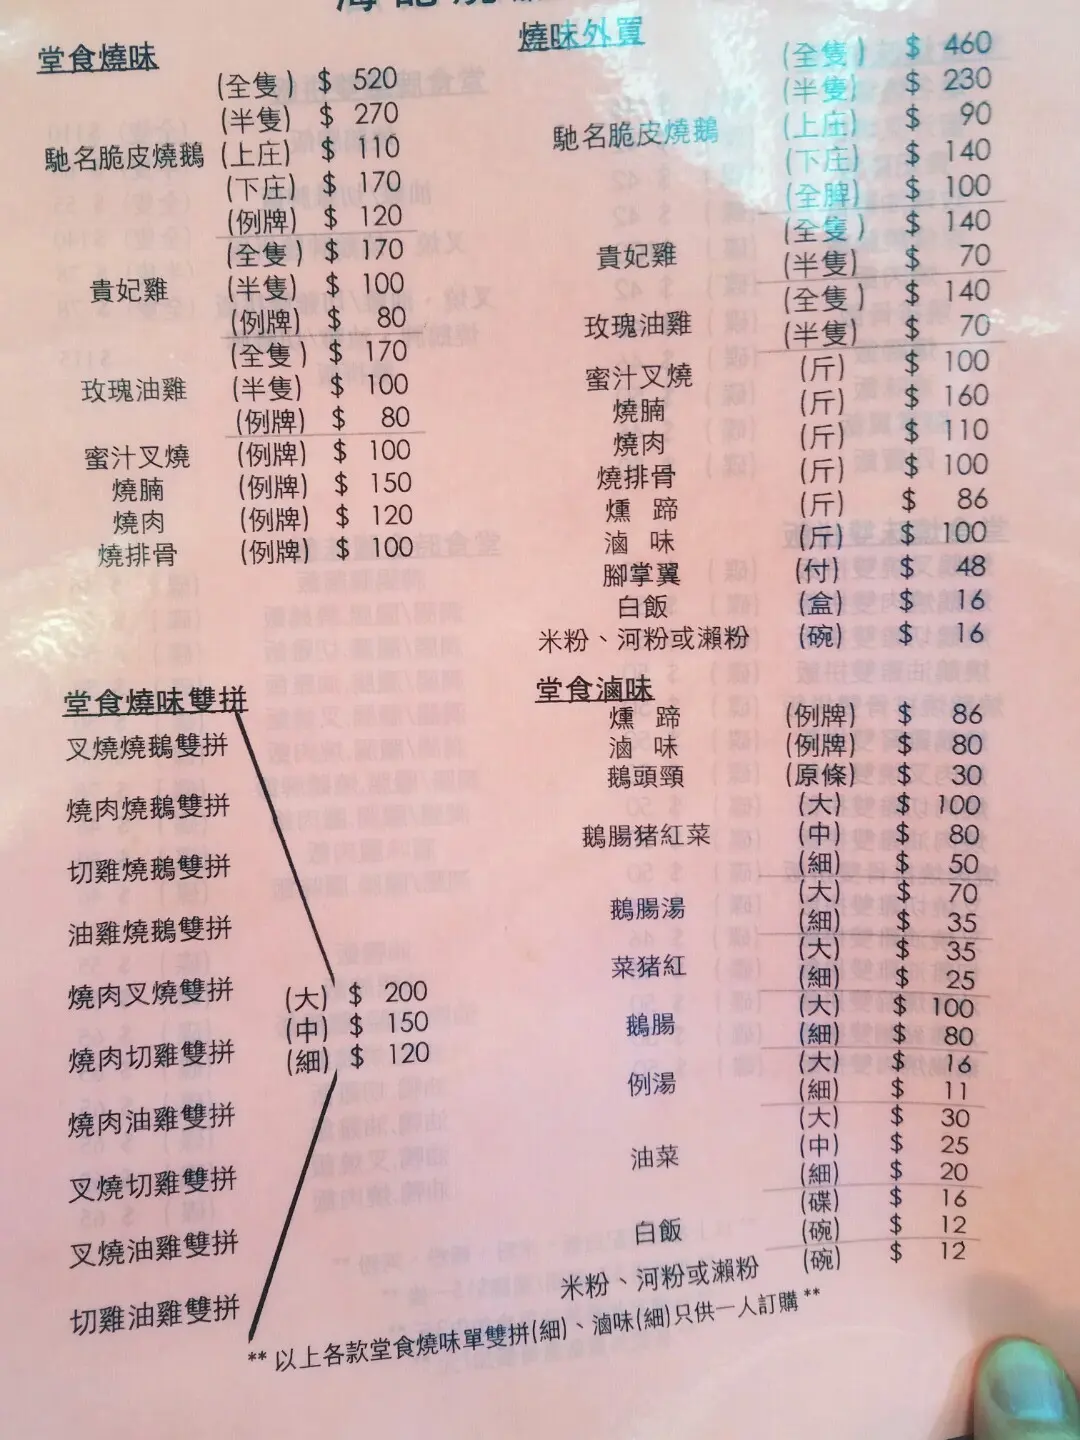 堂食燒味
(全隻) $ 520
(半隻) $ 270
馳名脆皮燒鵝 (上庄) $ 110
(下庄) $ 170
(例牌) $ 120
(全隻) $ 170
貴妃雞 (半隻) $ 100
(例牌) $ 80
(全隻) $ 170
玫瑰油雞 (半隻) $ 100
(例牌) $ 80
蜜汁叉燒 (例牌) $ 100
燒腩 (例牌) $ 150
燒肉 (例牌) $ 120
燒排骨 (例牌) $ 100
燒味外買
(全隻) $ 460
(半隻) $ 230
馳名脆皮燒鵝 (上庄) $ 90
(下庄) $ 140
(全脾) $ 100
貴妃雞 (全隻) $ 140
(半隻) $ 70
玫瑰油雞 (全隻) $ 140
(半隻) $ 70
蜜汁叉燒 (斤) $ 100
燒腩 (斤) $ 160
燒肉 (斤) $ 110
燒排骨 (斤) $ 100
燻 蹄 (斤) $ 86
滷 味 (斤) $ 100
腳掌翼 (付) $ 48
白飯 (盒) $ 16
米粉、河粉或瀨粉 (碗) $ 16
堂食燒味雙拼
叉燒燒鵝雙拼
燒肉燒鵝雙拼
切雞燒鵝雙拼
油雞燒鵝雙拼
燒肉叉燒雙拼
燒肉切雞雙拼
燒肉油雞雙拼
叉燒切雞雙拼
叉燒油雞雙拼
切雞油雞雙拼
(大) $ 200
(中) $ 150
(細) $ 120
堂食滷味
燻 蹄 (例牌) $ 86
滷 味 (例牌) $ 80
鵝頭頸 (原條) $ 30
(大) $ 100
鵝腸猪紅菜 (中) $ 80
(細) $ 50
鵝腸湯 (大) $ 70
(細) $ 35
菜猪紅 (大) $ 35
(細) $ 25
鵝腸 (大) $ 100
(細) $ 80
例湯 (大) $ 16
(細) $ 11
(大) $ 30
油菜 (中) $ 25
(細) $ 20
白飯 (碟) $ 16
(碗) $ 12
米粉、河粉或瀨粉 (碗) $ 12
** 以上各款堂食燒味單雙拼(細)、滷味(細)只供一人訂購 **